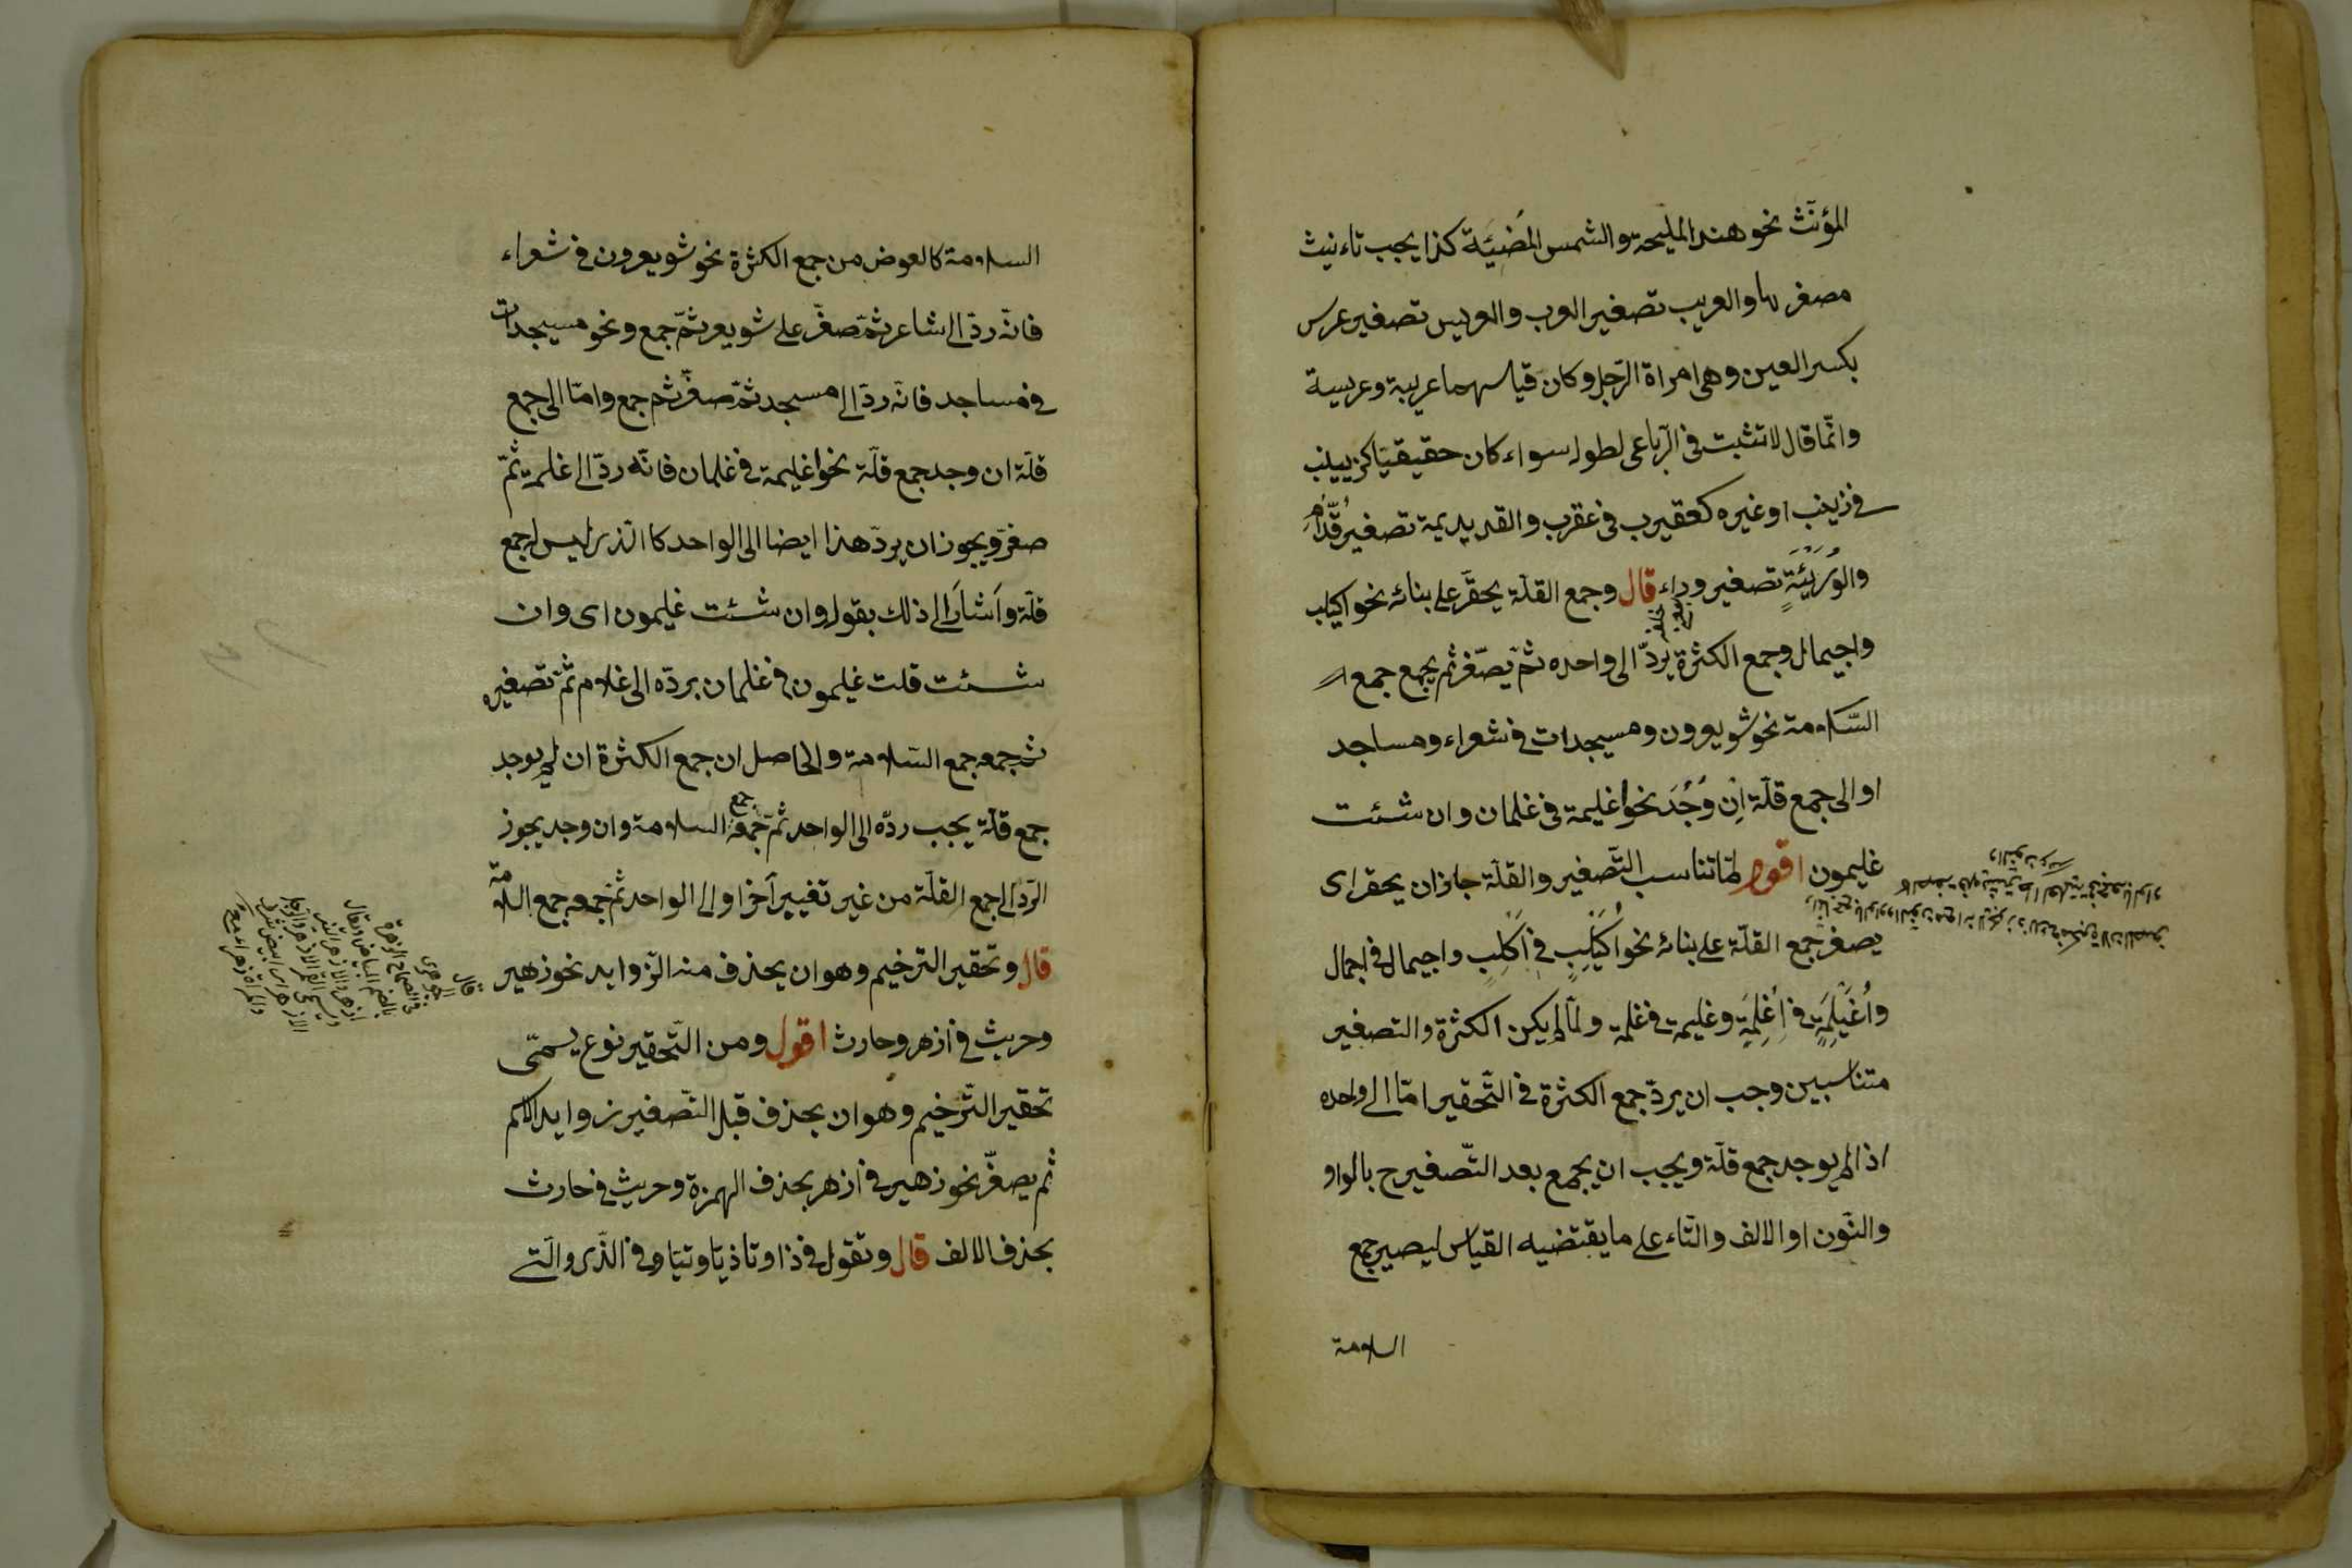 المؤنّث نحو هند المليحة والشمس المُضيئَة كذا يجب تاءنيث
مصغرها والعريب تصغير العرب والعريس تصغير عرس
بكسر العين وهى امراة الرّجل وكان قياسهما عريبة وعريسة
وانّما قال لا تثبت فى الرّباعى لطوله سواء كان حقيقيّا كزيينب
فى زينب او غيره كعقيرب فى عقرب والقديديمة تصغير قُدّام
والوُرَيْئَةِ تصغير وراء قال وجمع القلّة يحقّر على بنائه نحو اكيلب
واجيمال وجمع الكثرة يردّ الى واحده ثمّ يصّغر ثم يجمع جمع
السّلامة نحو شويعرون ومسيجدات فى شعراء ومساجد
او الى جمع قلّة اِن وُجُدَ نحو اغليمة فى غلمان وان شئت
غليمون اقول لمّا تناسب التّصغير والقلّة جاز ان يحقر اى
يصغر جمع القلّة على بنائه نحو اُكَيْلِبٍ فى اَكْلُبٍ واجيمال فى اجمال
واُغَيْلِمَةٍ فى اَغْلِمَةٍ وغليمة فى غلمة ولمّا لم يكن الكثرة والتصغير
متناسبين وجب ان يردّ جمع الكثرة فى التّحقير امّا الى واحده
اذا لم يوجد جمع قلّة ويجب ان يجمع بعد التّصغير ح بالواو
والنّون او الالف والتّاء على ما يقتضيه القياس ليصير جمع
السلامة
السلامة كالعوض من جمع الكثرة نحو شويعرون فى شعراء
فانّه ردّ الى شاعر ثمّ صغّر على شويعر ثمّ جمع ونحو مسيجدات
فى مساجد فانّه ردّ الى مسجد ثمّ صغّر ثم جمع وامّا الى جمع
قلّة ان وجد جمع قلّة نحو اغليمة فى غلمان فانّه ردّ الى غلمة ثمّ
صغّر ويجوز ان يردّ هذا ايضا الى الواحد كالّذى ليس له جمع
قلّة واَشارَ الى ذلك بقوله وان شئت غليمون اى وان
شئت قلت غليمون فى غلمان بردّه الى غلام ثمّ تصغيره
ثم جمعه جمع السّلامة والحاصل ان جمع الكثرة ان لم يوجد
جمع قلّة يجب ردّه الى الواحد ثمّ جمعه جمع السلامة وان وجد يجوز
الرّد الى جمع القلّة من غير تغيير آخر او الى الواحد ثمّ جمعه جمع السلامة
قال وتحقير الترخيم وهو ان يحذف منه الزّوايد نحو زهير
وحريث فى ازهر وحارث اقول ومن التّحقير نوع يسمّى
تحقير التّرخيم وهو ان يحذف قبل التّصغير زوايد الاسم
ثم يصغّر نحو زهير فى ازهر بحذف الهمزة وحريث فى حارث
بحذف الالف قال وتقول فى ذا وتا ذيّا وتيّا وفى الّذى والّتى
قال
الجوهرى
فى الصحاح الزهرة
بالضم البياض ويقال